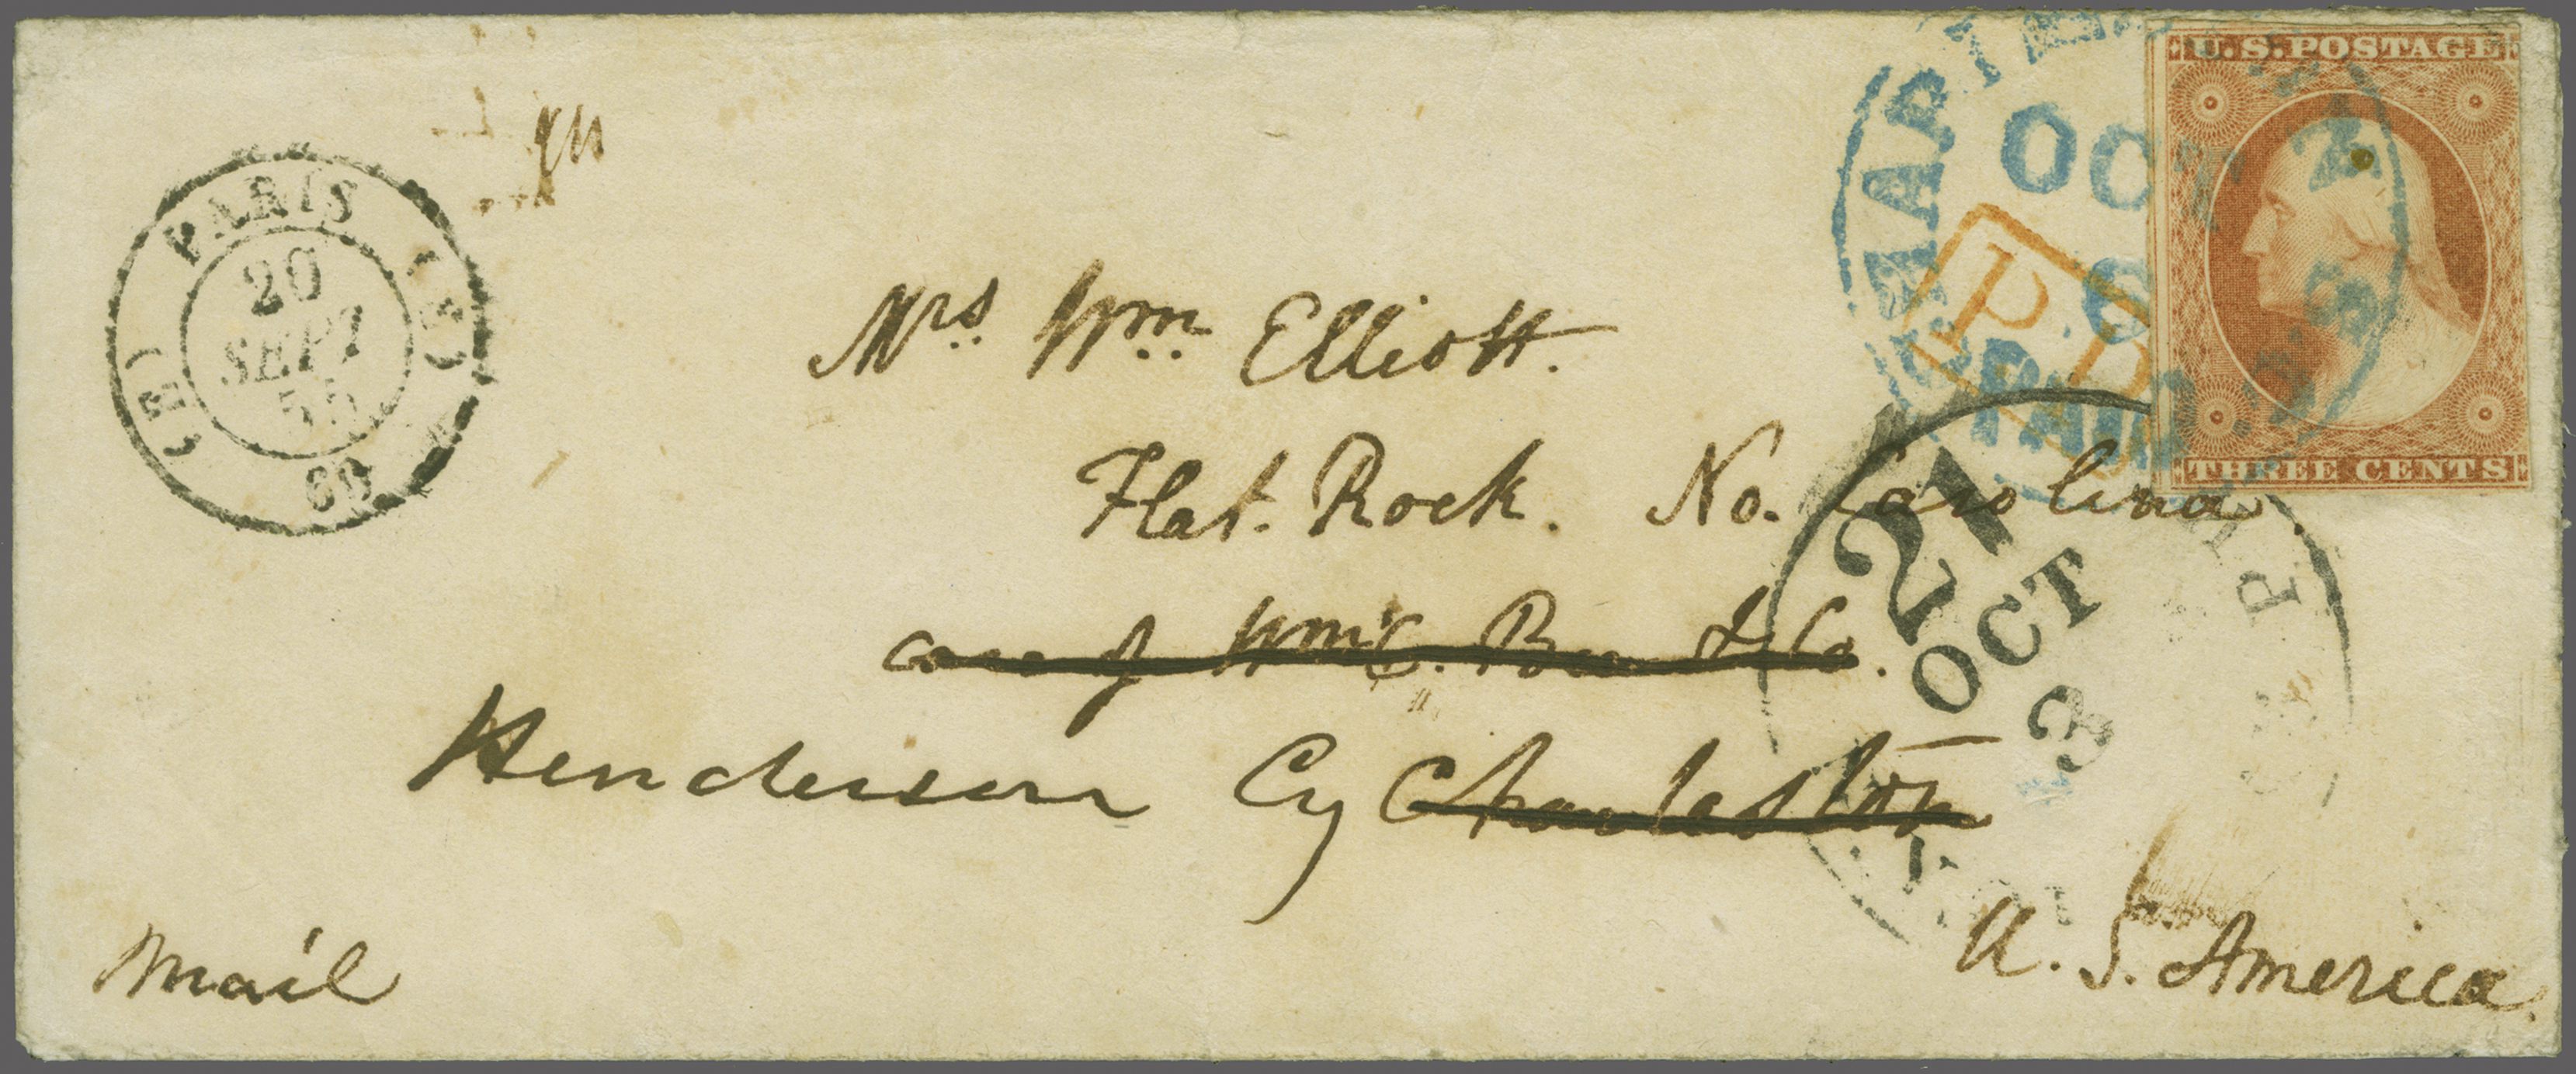 U.S. POSTAGE
OCT
P.D.
PAID
THREE CENTS
PARIS
20
SEPT
55
(E)
60
Mrs. Wm. Elliott.
Flat. Rock. No. Carolina
care of Wm. C. & Co.
Henderson Cy Charleston
21
OCT
3
Mail
U. S. America.